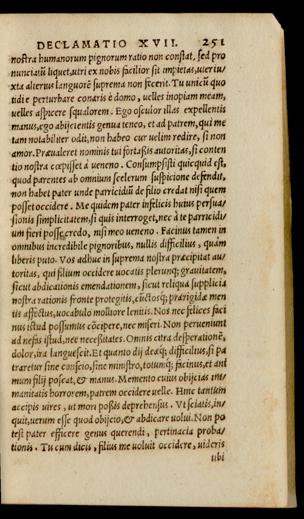 DECLAMATIO XVII. 251
nostra humanorum pignorum ratio non constat, sed pro
nunciatũ liquet, utri ex nobis facilior sit impietas, uter iu/
xta alterius languorẽ suprema non fecerit. Tu unicũ quo
tidie perturbare conaris è domo, uelles inopiam meam,
uelles aspicere squalorem. Ego osculor illas expellentis
manus, ego abijcientis genua teneo, et ad patrem, qui me
tam notabiliter odit, non habeo cur uelim redire, si non
amor. Præualeret nominis tui fortassis autoritas, si conten
tio nostra cœpisset à ueneno. Consumpsisti quicquid est,
quod parentes ab omnium scelerum suspicione defendit,
non habet pater unde parricidiũ de filio credat nisi quem
posset occidere. Me quidem pater infelicis huius persua/
sionis simplicitatem, si quis interroget, nec à te parricidi/
um fieri posse, credo, nisi meo ueneno. Facinus tamen in
omnibus incredibile pignoribus, nullis difficilius, quàm
liberis puto. Vos adhuc in suprema nostra præcipitat au/
toritas, qui filium occidere uocatis plerunq; grauitatem,
sicut abdicationis emendationem, sicut reliqua supplicia
nostra rationis fronte protegitis, cunctosq́; prærigidæ men
tis affectus, uocabulo molliore lenitis. Nos nec felices faci
nus istud possumus cõcipere, nec miseri. Non perueniunt
ad nefas istud, nec necessitates. Omnis citra desperationẽ,
dolor, ira languescit. Et quanto dij deæq́; difficilius, si pa
traretur sine conscio, sine ministro, totumq́; facinus, et ani
mum filij poscat, & manus. Memento cuius obijcias im/
manitatis horrorem, patrem occidere uelle. Hinc tantum
accipis uires, ut mori possis deprehensus. Vt sciatis, in/
quit, uerum esse quod obijcio, & abdicare uolui. Non po
test pater efficere genus querendi, pertinacia proba/
tionis. Tu cum dicis, filius me uoluit occidere, uideris
tibi